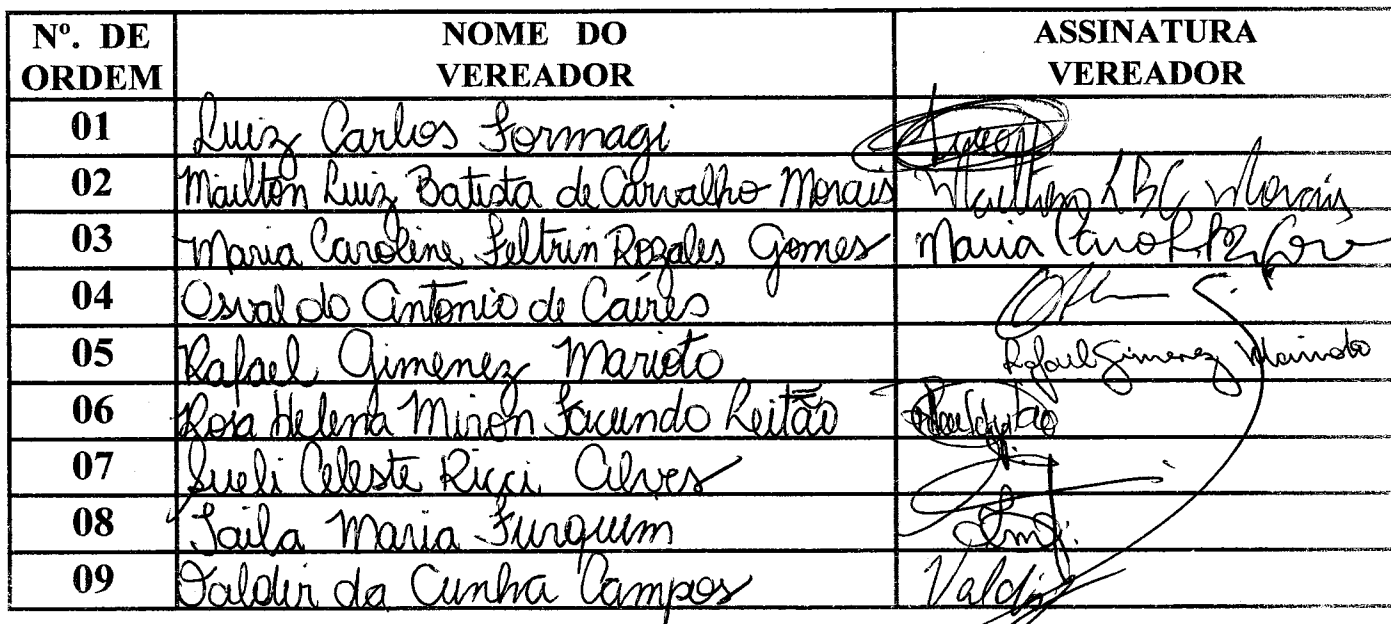 Nº. DE ORDEM NOME DO VEREADOR ASSINATURA VEREADOR
01 Luiz Carlos Formagi
02 Mailton Luiz Batista de Carvalho Morais Mailton LBC Morais
03 Maria Caroline Feltrin Rozales Gomes Maria Carol
04 Osvaldo Antonio de Caires
05 Rafael Gimenez Marioto Rafael Gimenez Marioto
06 Rosa Helena Miron Facundo Leitão
07 Sueli Celeste Ricci Alves
08 Taila Maria Furquim
09 Valdir da Cunha Campos Valdir